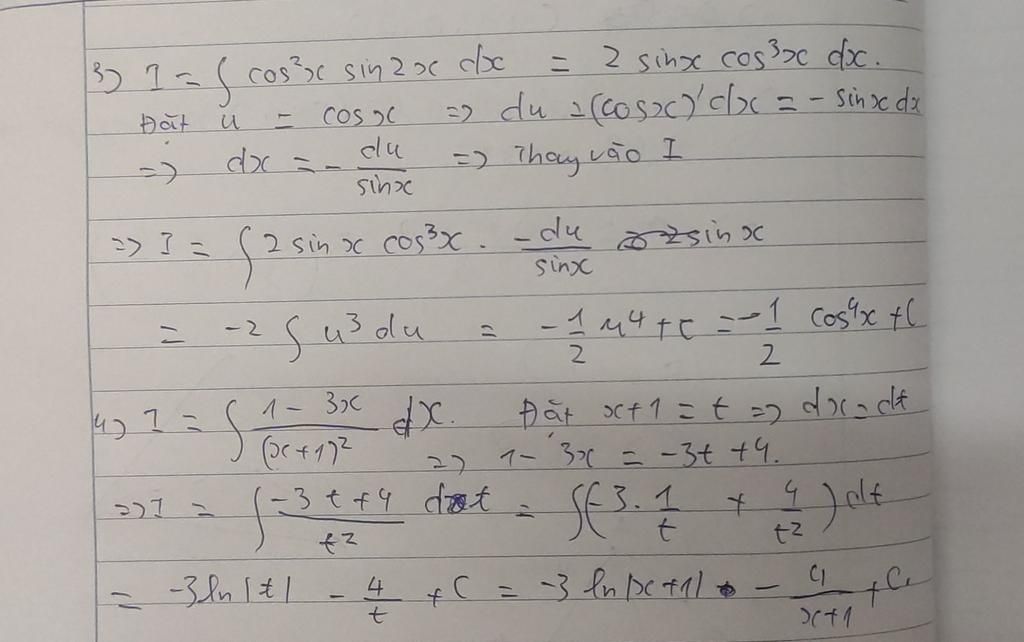 3) I = ∫ cos²x sin2x dx = 2 sinx cos³x dx.
Đặt u = cosx => du = (cosx)'dx = - sinx dx
=> dx = - du/sinx => Thay vào I
=> I = ∫ 2 sinx cos³x . -du/sinx sinx
= -2 ∫ u³ du = -1/2 u⁴ + C = -1/2 cos⁴x + C
4) I = ∫ (1 - 3x)/(x+1)² dx. Đặt x+1 = t => dx = dt
=> 1 - 3x = -3t + 4.
=> I = ∫ (-3t + 4)/t² dt = ∫(-3. 1/t + 4/t²) dt
= -3 ln|t| - 4/t + C = -3 ln|x+1| - 4/(x+1) + C.